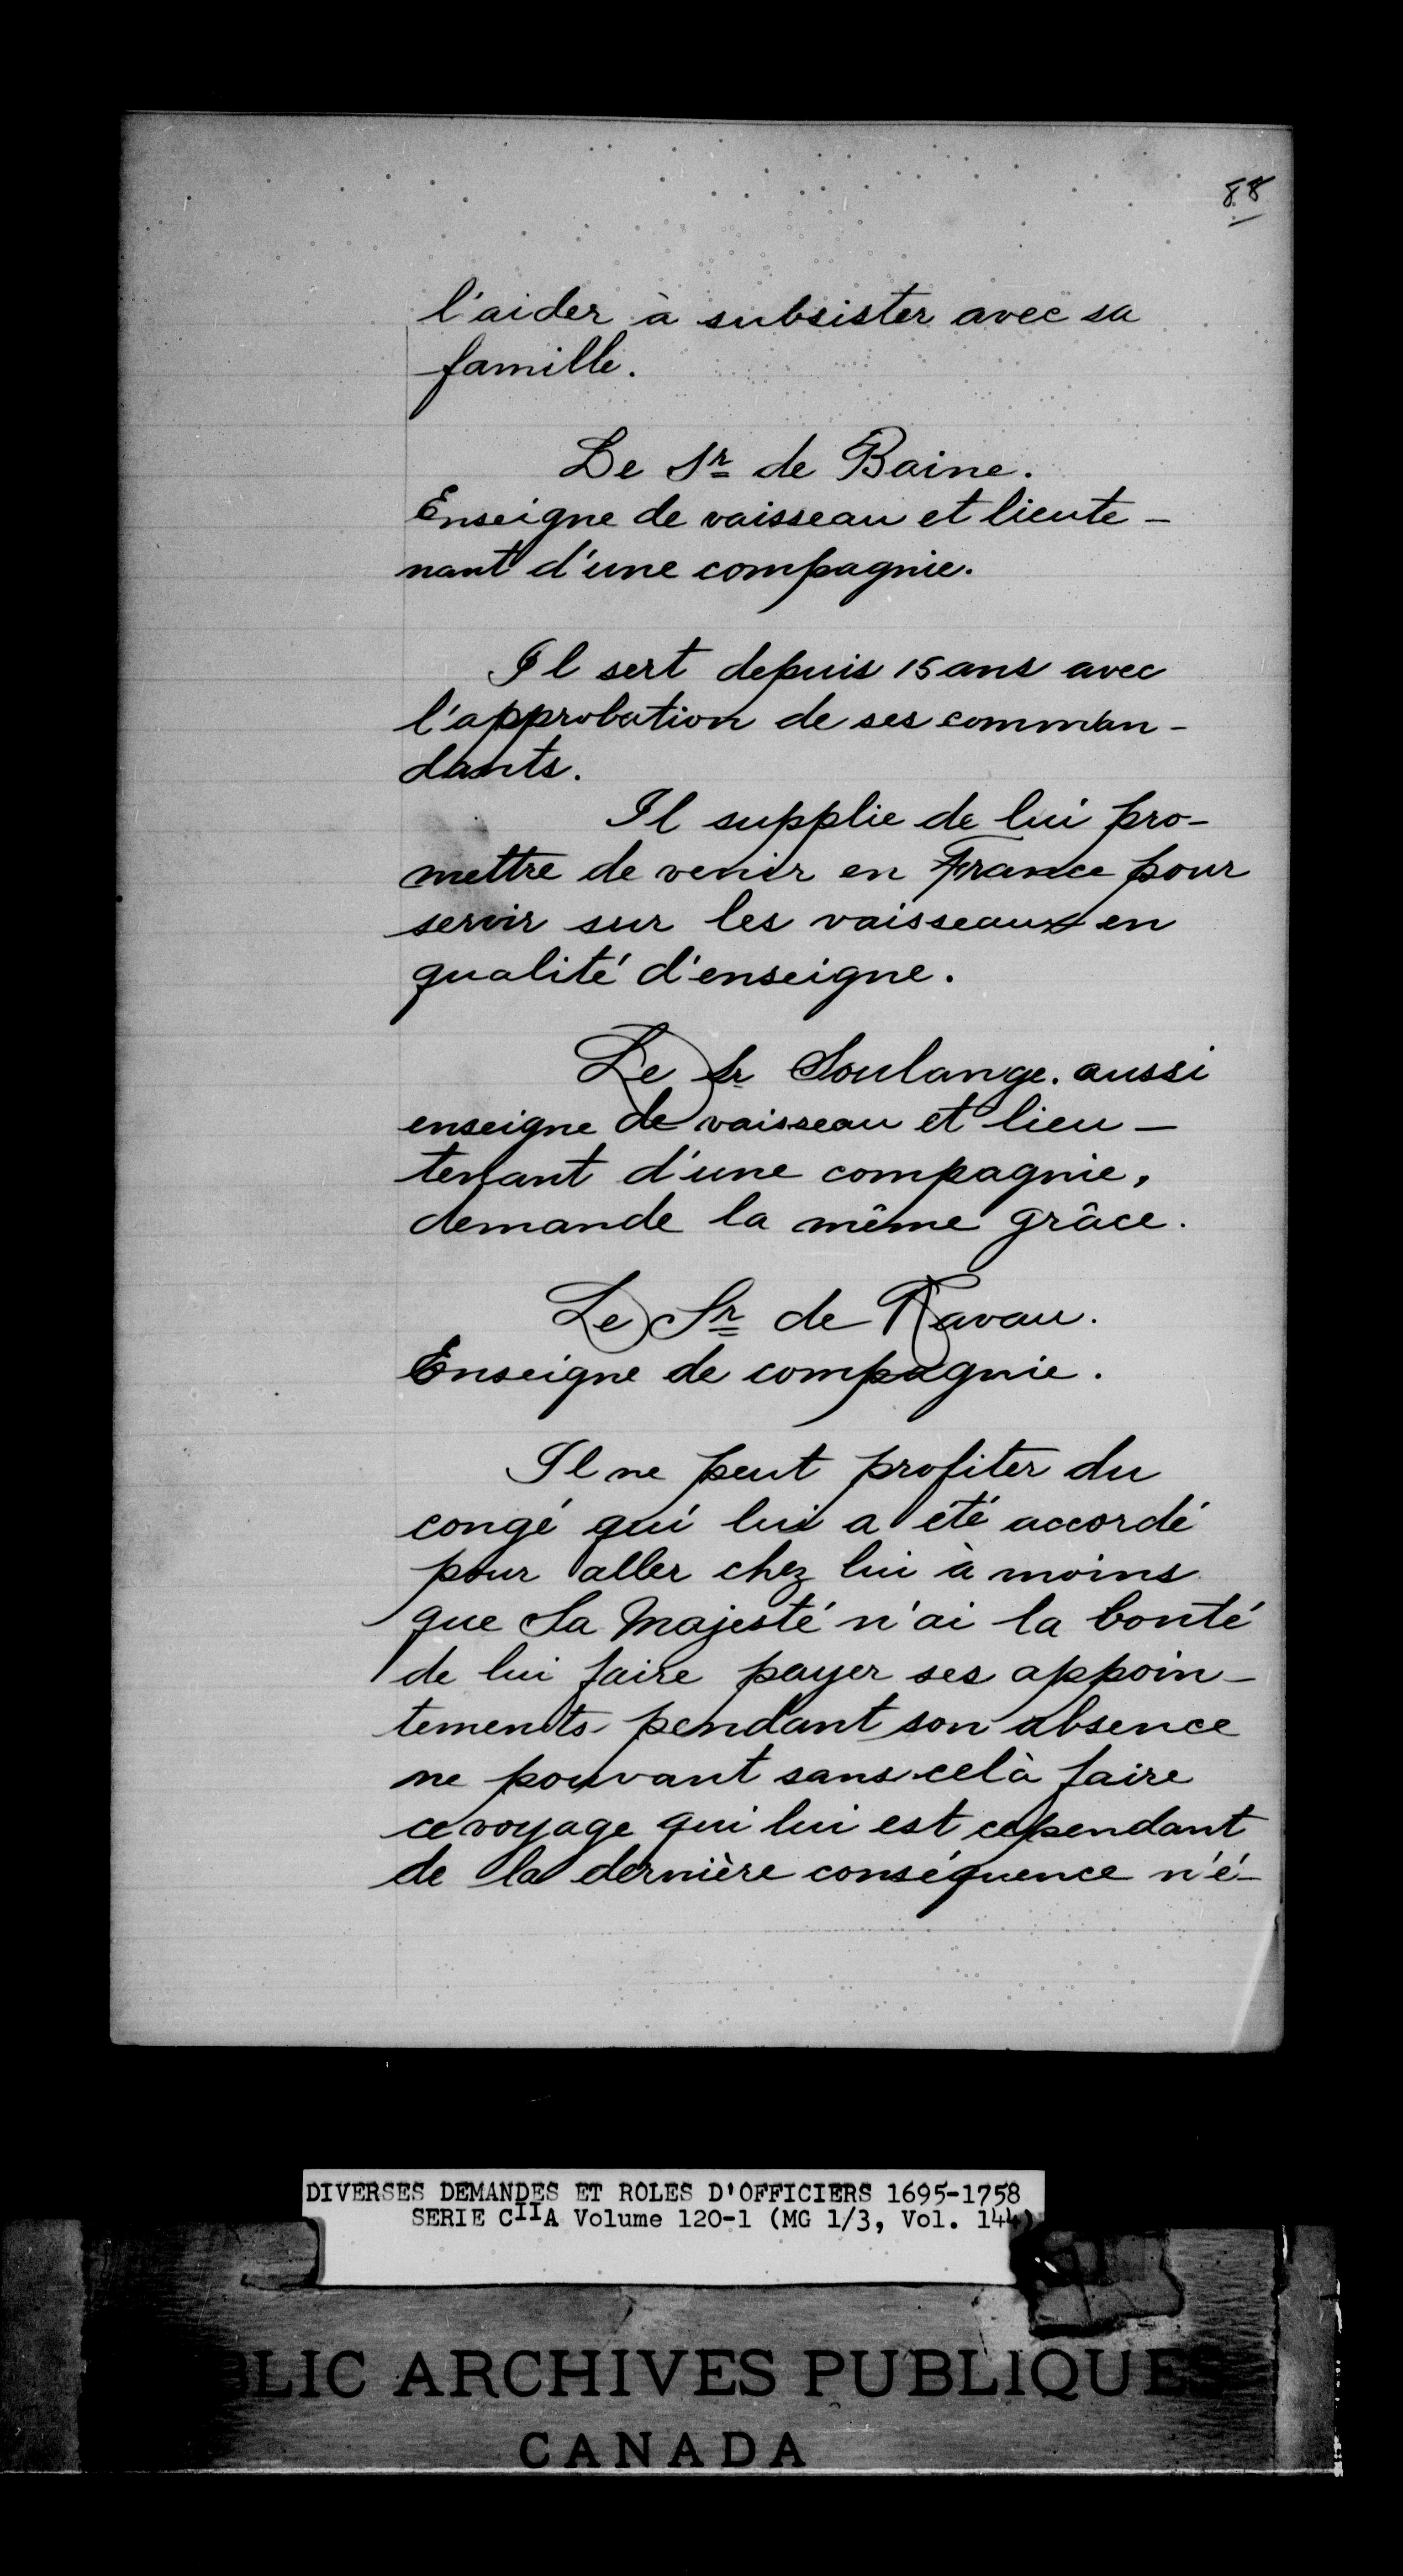 88
l'aider à subsister avec sa
famille.
Le Sr de Baine.
Enseigne de vaisseau et lieute-
nant d'une compagnie.
Il sert depuis 15 ans avec
l'approbation de ses comman-
dants.
Il supplie de lui pro-
mettre de venir en France pour
servir sur les vaisseaux en
qualité d'enseigne.
Le Sr Soulange. aussi
enseigne de vaisseau et lieu-
tenant d'une compagnie,
demande la même grâce.
Le Sr de Ravau.
Enseigne de compagnie.
Il ne peut profiter du
congé qui lui a été accordé
pour aller chez lui à moins
que Sa Majesté n'ai la bonté
de lui faire payer ses appoin-
tements pendant son absence
ne pouvant sans celà faire
ce voyage qui lui est cependant
de la dernière conséquence n'é-
DIVERSES DEMANDES ET ROLES D'OFFICIERS 1695-1758
SERIE CIIA Volume 120-1 (MG 1/3, Vol. 144)
BLIC ARCHIVES PUBLIQUES
CANADA